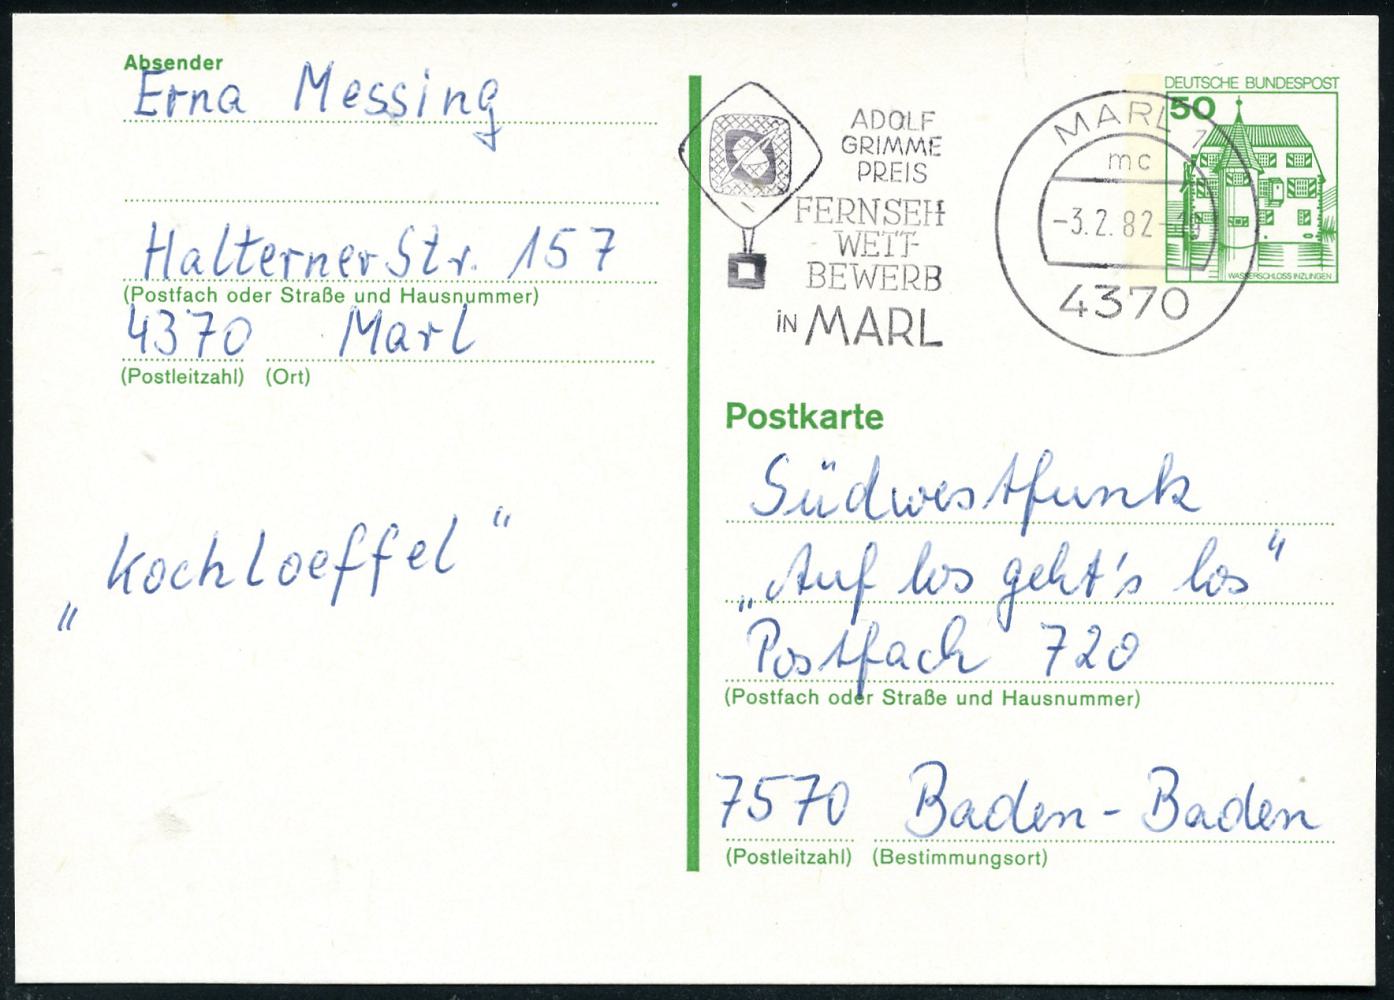 Absender
Erna Messing
Halterner Str. 157
(Postfach oder Straße und Hausnummer)
4370 Marl
(Postleitzahl) (Ort)
„Kochloeffel“
ADOLF
GRIMME
PREIS
FERNSEH
WETT-
BEWERB
iN MARL
MARL 1
mc
-3.2.82-
4370
DEUTSCHE BUNDESPOST
50
WASSERSCHLOSS INZLINGEN
Postkarte
Südwestfunk
„Auf los geht's los“
Postfach 720
(Postfach oder Straße und Hausnummer)
7570 Baden-Baden
(Postleitzahl) (Bestimmungsort)